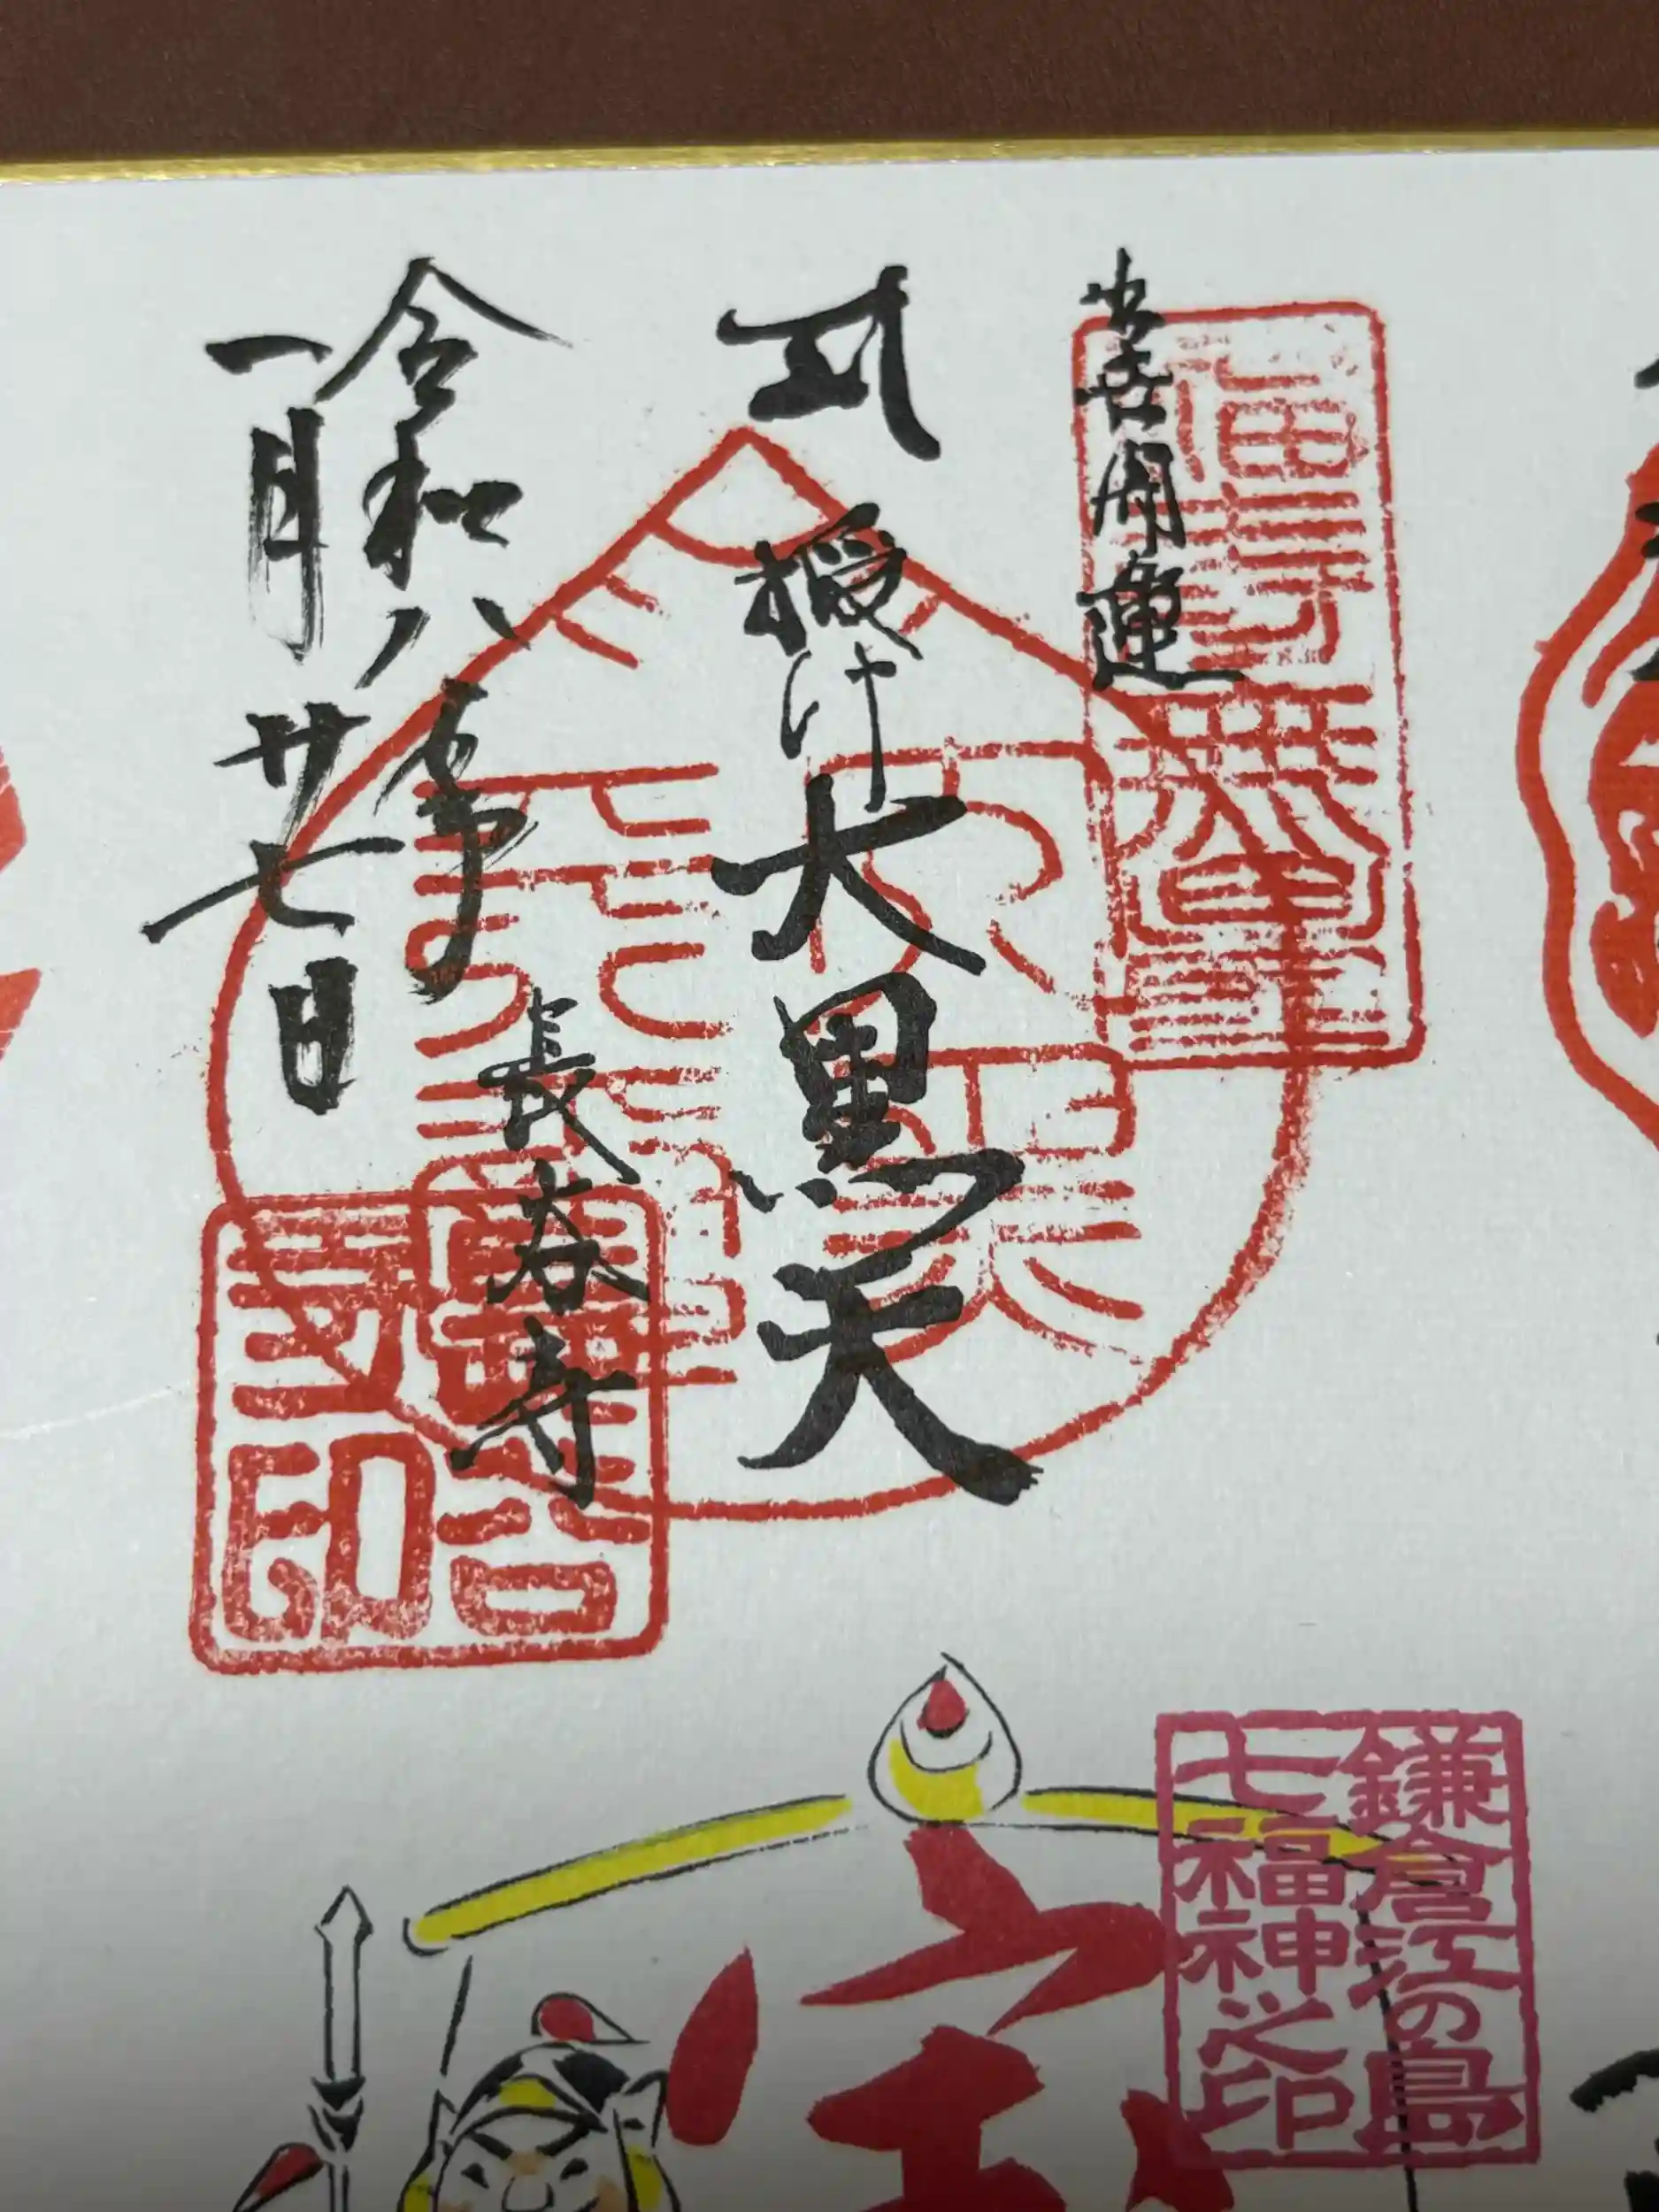 出世開運
福寿無量
授け大黒天
長谷寺
令和八年
一月廿七日
長谷寺印
鎌倉江の島
七福神之印
宝